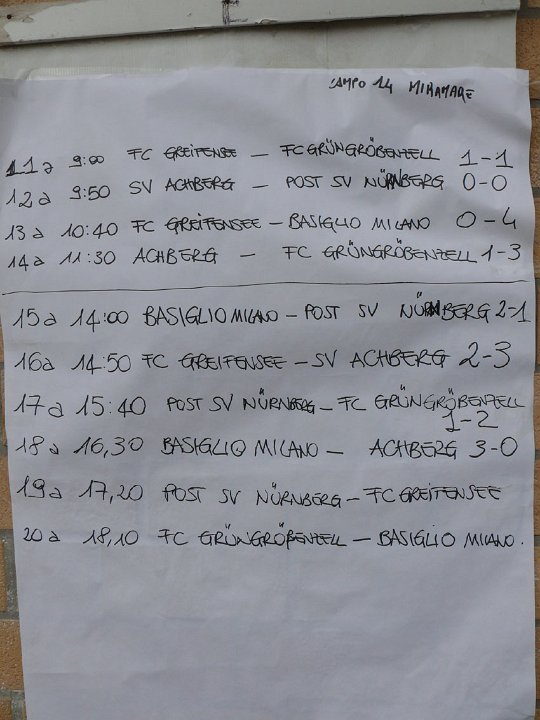 CAMPO 14 MIRAMARE
11a 9:00 FC GREIFENSEE – FC GRÜNGRÖBENZELL 1-1
12a 9:50 SV ACHBERG – POST SV NÜRNBERG 0-0
13a 10:40 FC GREIFENSEE – BASIGLIO MILANO 0-4
14a 11:30 ACHBERG – FC GRÜNGRÖBENZELL 1-3
15a 14:00 BASIGLIO MILANO – POST SV NÜRNBERG 2-1
16a 14:50 FC GREIFENSEE – SV ACHBERG 2-3
17a 15:40 POST SV NÜRNBERG – FC GRÜNGRÖBENZELL
1-2
18a 16,30 BASIGLIO MILANO – ACHBERG 3-0
19a 17,20 POST SV NÜRNBERG – FC GREIFENSEE
20a 18,10 FC GRÜNGRÖBENZELL – BASIGLIO MILANO.